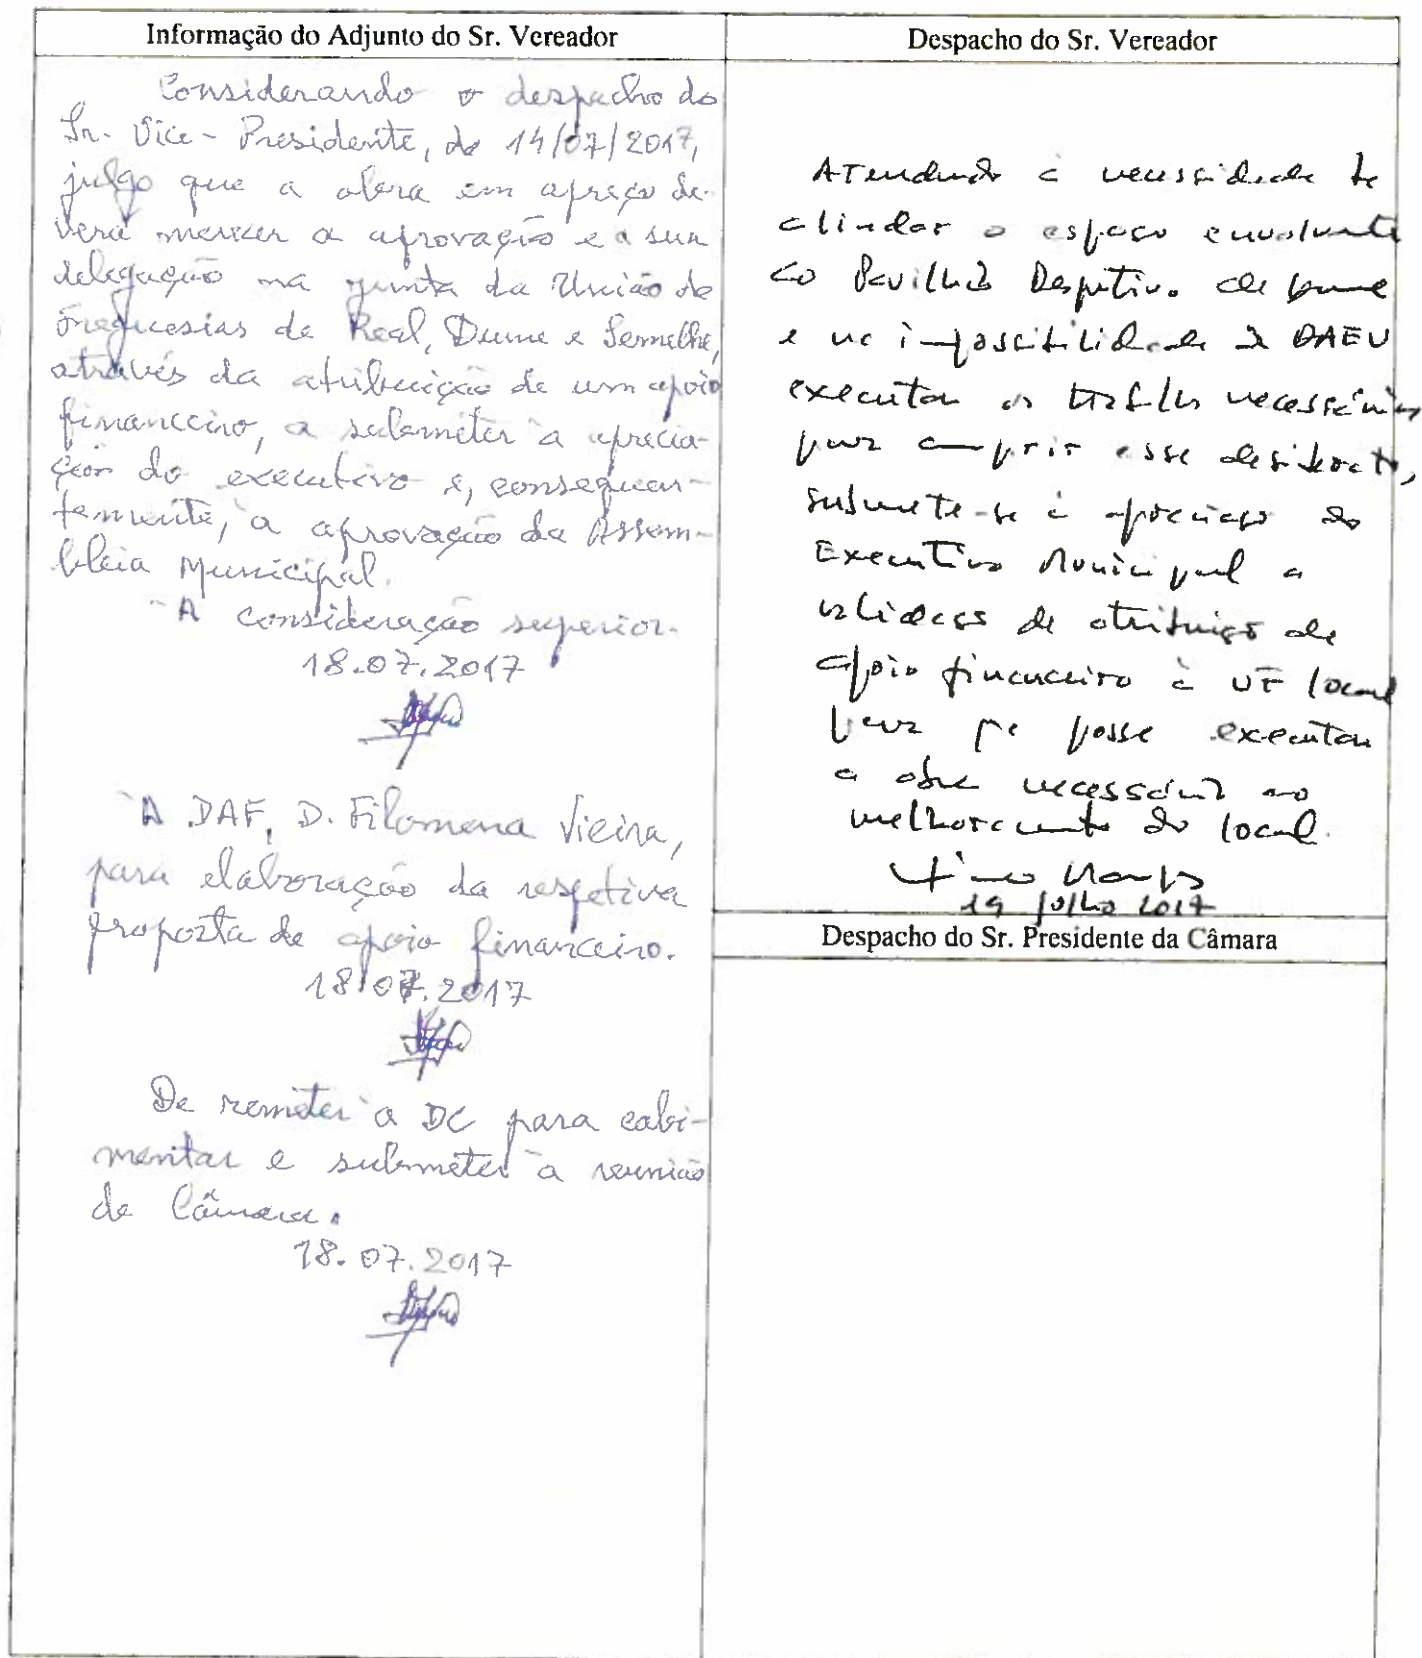 Informação do Adjunto do Sr. Vereador
Considerando o despacho do
Sr. Vice-Presidente, de 14/07/2017,
julgo que a obra em apreço de-
verá merecer a aprovação e a sua
delegação na junta da União de
Freguesias de Real, Dume e Semelhe,
através da atribuição de um apoio
financeiro, a submeter à aprecia-
ção do executivo e, consequen-
temente, à aprovação da Assem-
bleia Municipal.
À consideração superior.
18.07.2017
À DAF, D. Filomena Vieira,
para elaboração da respetiva
proposta de apoio financeiro.
18.07.2017
De remeter à DC para cabi-
mentar e submeter à reunião
de Câmara.
18.07.2017
Despacho do Sr. Vereador
Atendendo à necessidade de
alindar o espaço envolvente
ao Pavilhão Desportivo de Dume
e na impossibilidade da DAEV
executar os trabalhos necessários
para cumprir esse desiderato,
submete-se à apreciação do
Executivo Municipal a
validação de atribuição de
apoio financeiro à UF local
para que possa executar
a obra necessária ao
melhoramento do local.
19 Julho 2017
Despacho do Sr. Presidente da Câmara